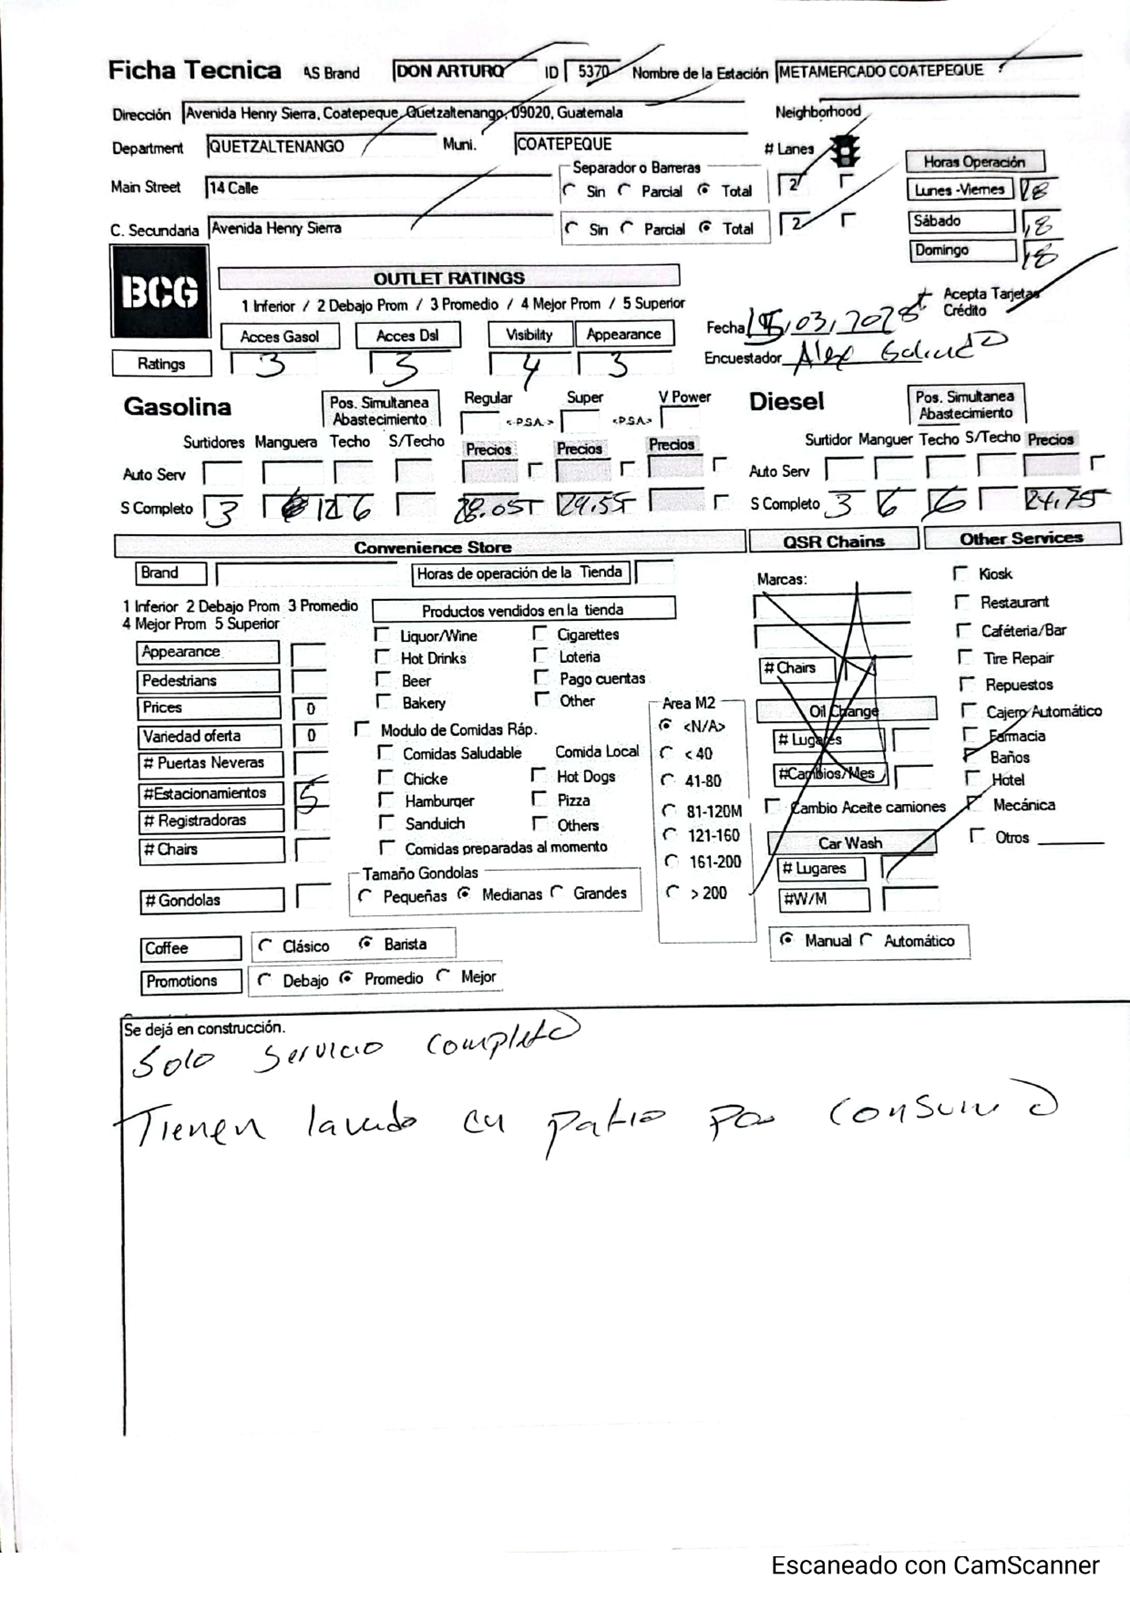 Ficha Tecnica AS Brand DON ARTURO ID 5370 Nombre de la Estación METAMERCADO COATEPEQUE
Dirección Avenida Henry Sierra, Coatepeque, Quetzaltenango, 09020, Guatemala Neighborhood
Department QUETZALTENANGO Muni. COATEPEQUE # Lanes
Separador o Barreras Horas Operación
Main Street 14 Calle Sin Parcial Total 2 Lunes -Viernes 18
C. Secundaria Avenida Henry Sierra Sin Parcial Total 2 Sábado 18
Domingo 18
BCG
OUTLET RATINGS
1 Inferior / 2 Debajo Prom / 3 Promedio / 4 Mejor Prom / 5 Superior
Acepta Tarjetas Crédito
Acces Gasol Acces Dsl Visibility Appearance Fecha 15/03/2025
Ratings 3 3 4 3 Encuestador Alex Galindo
Gasolina Pos. Simultanea Abastecimiento Regular <-P.S.A.-> Super <-P.S.A.-> V Power Diesel Pos. Simultanea Abastecimiento
Surtidores Manguera Techo S/Techo Precios Precios Precios Surtidor Manguer Techo S/Techo Precios
Auto Serv Auto Serv
S Completo 3 12 6 28.05 29.55 S Completo 3 6 6 24.75
Convenience Store QSR Chains Other Services
Brand Horas de operación de la Tienda Marcas: Kiosk
1 Inferior 2 Debajo Prom 3 Promedio Productos vendidos en la tienda Restaurant
4 Mejor Prom 5 Superior Liquor/Wine Cigarettes Caféteria/Bar
Appearance Hot Drinks Loteria # Chairs Tire Repair
Pedestrians Beer Pago cuentas Repuestos
Prices 0 Bakery Other Area M2 Oil Change Cajero Automático
Variedad oferta 0 Modulo de Comidas Ráp. <N/A> # Lugares Farmacia
# Puertas Neveras Comidas Saludable Comida Local < 40 Baños
#Estacionamientos 5 Chicke Hot Dogs 41-80 #Cambios/Mes Hotel
# Registradoras Hamburger Pizza 81-120M Cambio Aceite camiones Mecánica
# Chairs Sanduich Others 121-160 Car Wash Otros
Comidas preparadas al momento 161-200 # Lugares
Tamaño Gondolas
# Gondolas Pequeñas Medianas Grandes > 200 #W/M
Coffee Clásico Barista Manual Automático
Promotions Debajo Promedio Mejor
Se dejá en construcción.
Solo Servicio completo
Tienen lavado en patio por consumo
Escaneado con CamScanner